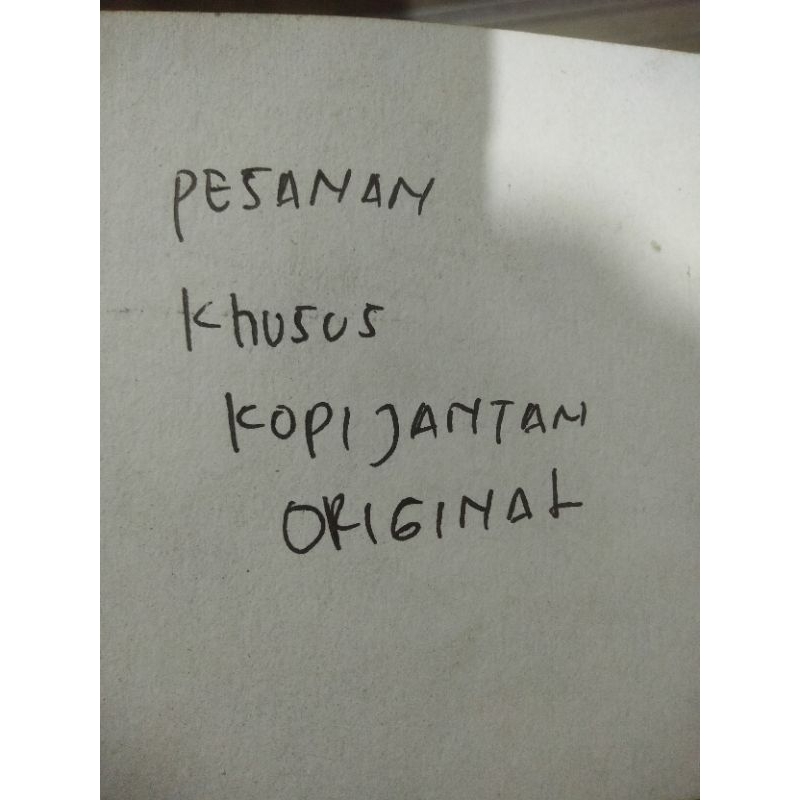 PESANAN
Khusus
KOPI JANTAN
ORIGINAL